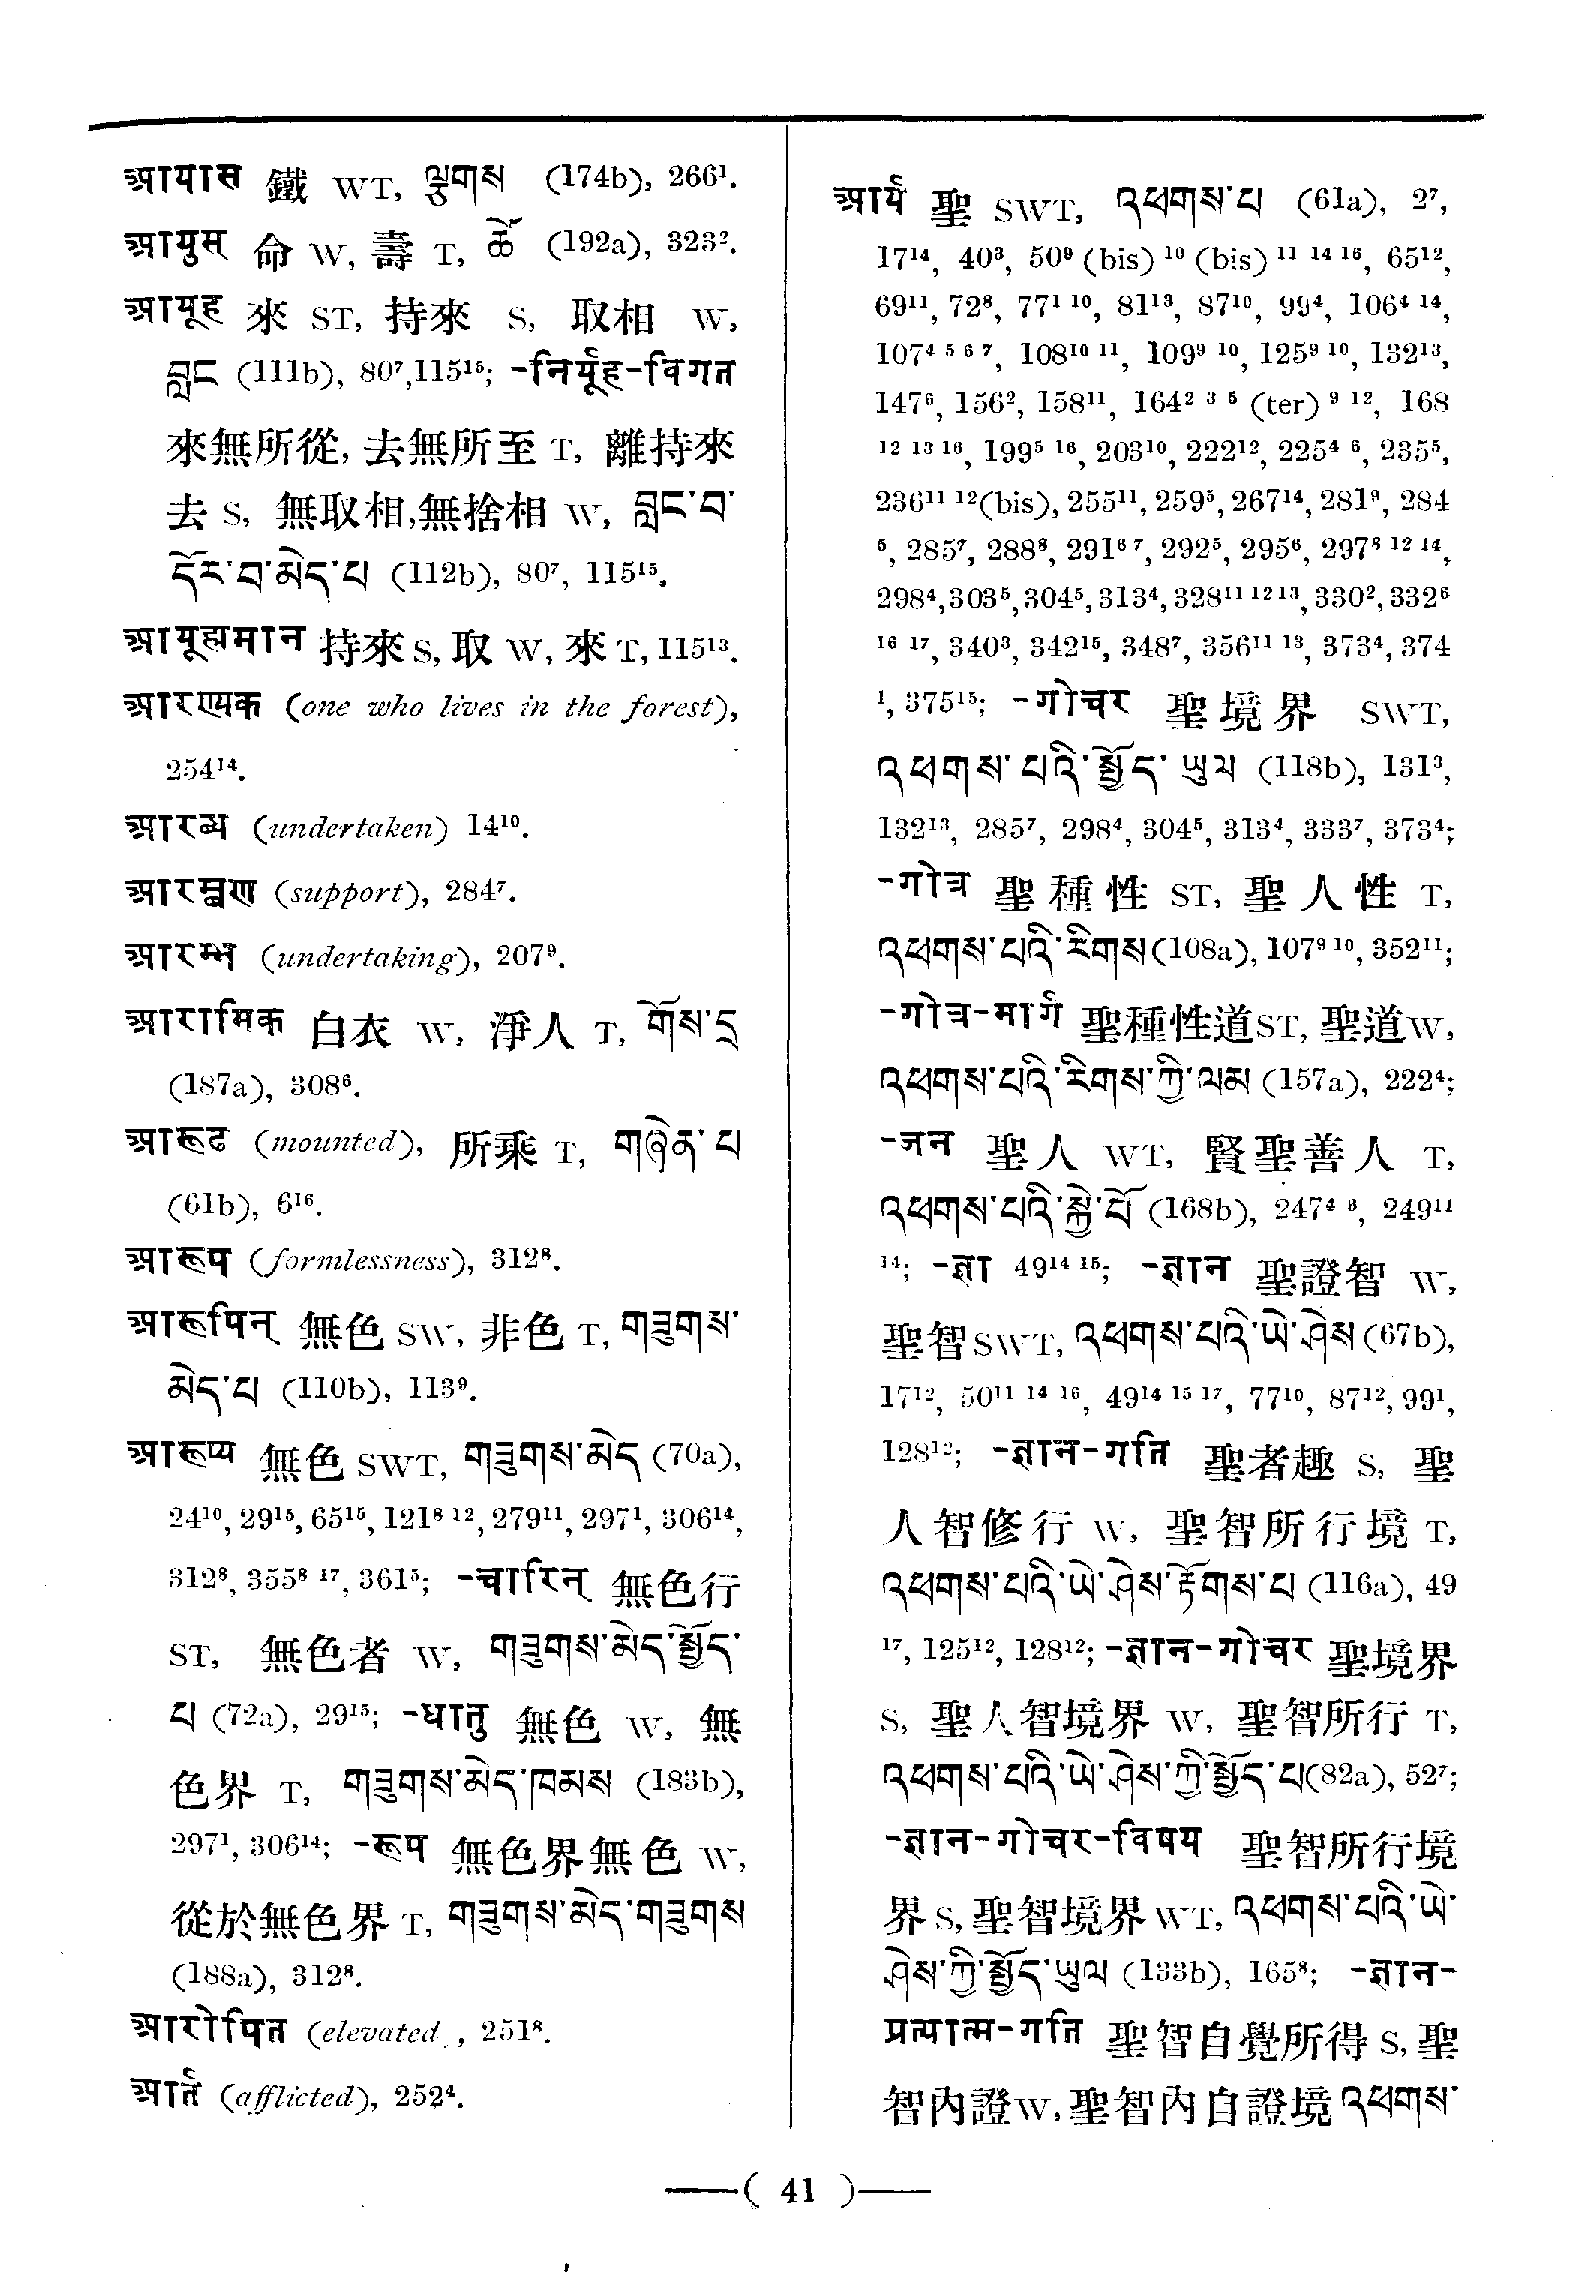 आयास 鐵 WT, ལྕགས (174b), 266¹.
आयुस् 命 W, 壽 T, ཚེ (192a), 323².
आयूह 來 ST, 持來 S, 取相 W,
བླང (111b), 80⁷,115¹⁵; -निर्यूह-विगत
來無所從, 去無所至 T, 離持來
去 S, 無取相,無捨相 W, བླང་བ་
དོར་བ་མེད་པ (112b), 80⁷, 115¹⁵.
आयूह्यमान 持來 S, 取 W, 來 T, 115¹³.
आरण्यक (one who lives in the forest),
254¹⁴.
आरब्ध (undertaken) 14¹⁰.
आरम्बण (support), 284⁷.
आरम्भ (undertaking), 207⁹.
आरामिक 白衣 W, 淨人 T, གོས་དྲ
(187a), 308⁶.
आरूढ (mounted), 所乘 T, གཞེན་པ
(61b), 6¹⁶.
आरूप (formlessness), 312⁸.
आरूपिन् 無色 SW, 非色 T, གཟུགས་
མེད་པ (110b), 113⁹.
आरूप्य 無色 SWT, གཟུགས་མེད (70a),
24¹⁰, 29¹⁵, 65¹⁵, 121⁸ ¹², 279¹¹, 297¹, 306¹⁴,
312⁸, 355⁸ ¹⁷, 361⁵; -चारिन् 無色行
ST, 無色者 W, གཟུགས་མེད་སྤྱོད་
པ (72a), 29¹⁵; -धातु 無色 W, 無
色界 T, གཟུགས་མེད་ཁམས (183b),
297¹, 306¹⁴; -रूप 無色界無色 W,
從於無色界 T, གཟུགས་མེད་གཟུགས
(188a), 312⁸.
आरोपित (elevated , 251⁸.
आर्त (afflicted), 252⁴.
आर्य 聖 SWT, འཕགས་པ (61a), 2⁷,
17¹⁴, 40³, 50⁹ (bis) ¹⁰ (bis) ¹¹ ¹⁴ ¹⁶, 65¹²,
69¹¹, 72⁸, 77¹ ¹⁰, 81¹³, 87¹⁰, 99⁴, 106⁴ ¹⁴,
107⁴ ⁵ ⁶ ⁷, 108¹⁰ ¹¹, 109⁹ ¹⁰, 125⁹ ¹⁰, 132¹³,
147⁶, 156², 158¹¹, 164² ³ ⁵ (ter) ⁹ ¹², 168
¹² ¹³ ¹⁶, 199⁵ ¹⁶, 203¹⁰, 222¹², 225⁴ ⁶, 235⁵,
236¹¹ ¹²(bis), 255¹¹, 259⁵, 267¹⁴, 281⁹, 284
⁵, 285⁷, 288⁸, 291⁶ ⁷, 292⁵, 295⁶, 297⁸ ¹² ¹⁴,
298⁴,303⁵,304⁵,313⁴,328¹¹ ¹² ¹³,330²,332⁶
¹⁶ ¹⁷, 340³, 342¹⁵, 348⁷, 356¹¹ ¹³, 373⁴, 374
¹, 375¹⁵; -गोचर 聖境界 SWT,
འཕགས་པའི་སྤྱོད་ཡུལ (118b), 131³,
132¹³, 285⁷, 298⁴, 304⁵, 313⁴, 333⁷, 373⁴;
-गोत्र 聖種性 ST, 聖人性 T,
འཕགས་པའི་རིགས(108a), 107⁹ ¹⁰, 352¹¹;
-गोत्र-मार्ग 聖種性道ST, 聖道W,
འཕགས་པའི་རིགས་ཀྱི་ལམ (157a), 222⁴;
-जन 聖人 WT, 賢聖善人 T,
འཕགས་པའི་སྐྱེ་བོ (168b), 247⁴ ⁸, 249¹¹
¹⁴; -ज्ञा 49¹⁴ ¹⁵; -ज्ञान 聖證智 W,
聖智SWT, འཕགས་པའི་ཡེ་ཤེས (67b),
17¹², 50¹¹ ¹⁴ ¹⁶, 49¹⁴ ¹⁵ ¹⁷, 77¹⁰, 87¹², 99¹,
128¹²; -ज्ञान-गति 聖者趣 S, 聖
人智修行 W, 聖智所行境 T,
འཕགས་པའི་ཡེ་ཤེས་རྟོགས་པ (116a), 49
¹⁷, 125¹², 128¹²; -ज्ञान-गोचर 聖境界
S, 聖人智境界 W, 聖智所行 T,
འཕགས་པའི་ཡེ་ཤེས་ཀྱི་སྤྱོད་པ(82a), 52⁷;
-ज्ञान-गोचर-विषय 聖智所行境
界 S, 聖智境界 WT, འཕགས་པའི་ཡེ་
ཤེས་ཀྱི་སྤྱོད་ཡུལ (133b), 165⁸; -ज्ञान-
प्रत्यात्म-गति 聖智自覺所得 S, 聖
智內證W, 聖智內自證境 འཕགས་
—( 41 )—